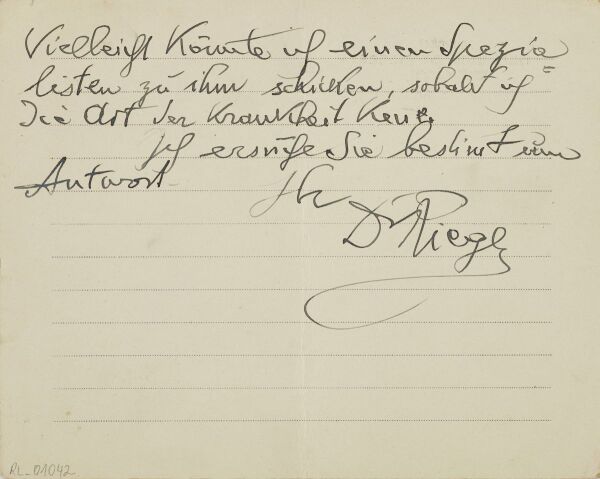 Vielleicht könnte ich einen Spezia=
listen zu ihm schicken, sobald ich
die Art der Krankheit kenne.
Ich ersuche Sie bestimmt um
Antwort
Ihr
Dr Riegl
RL_01042